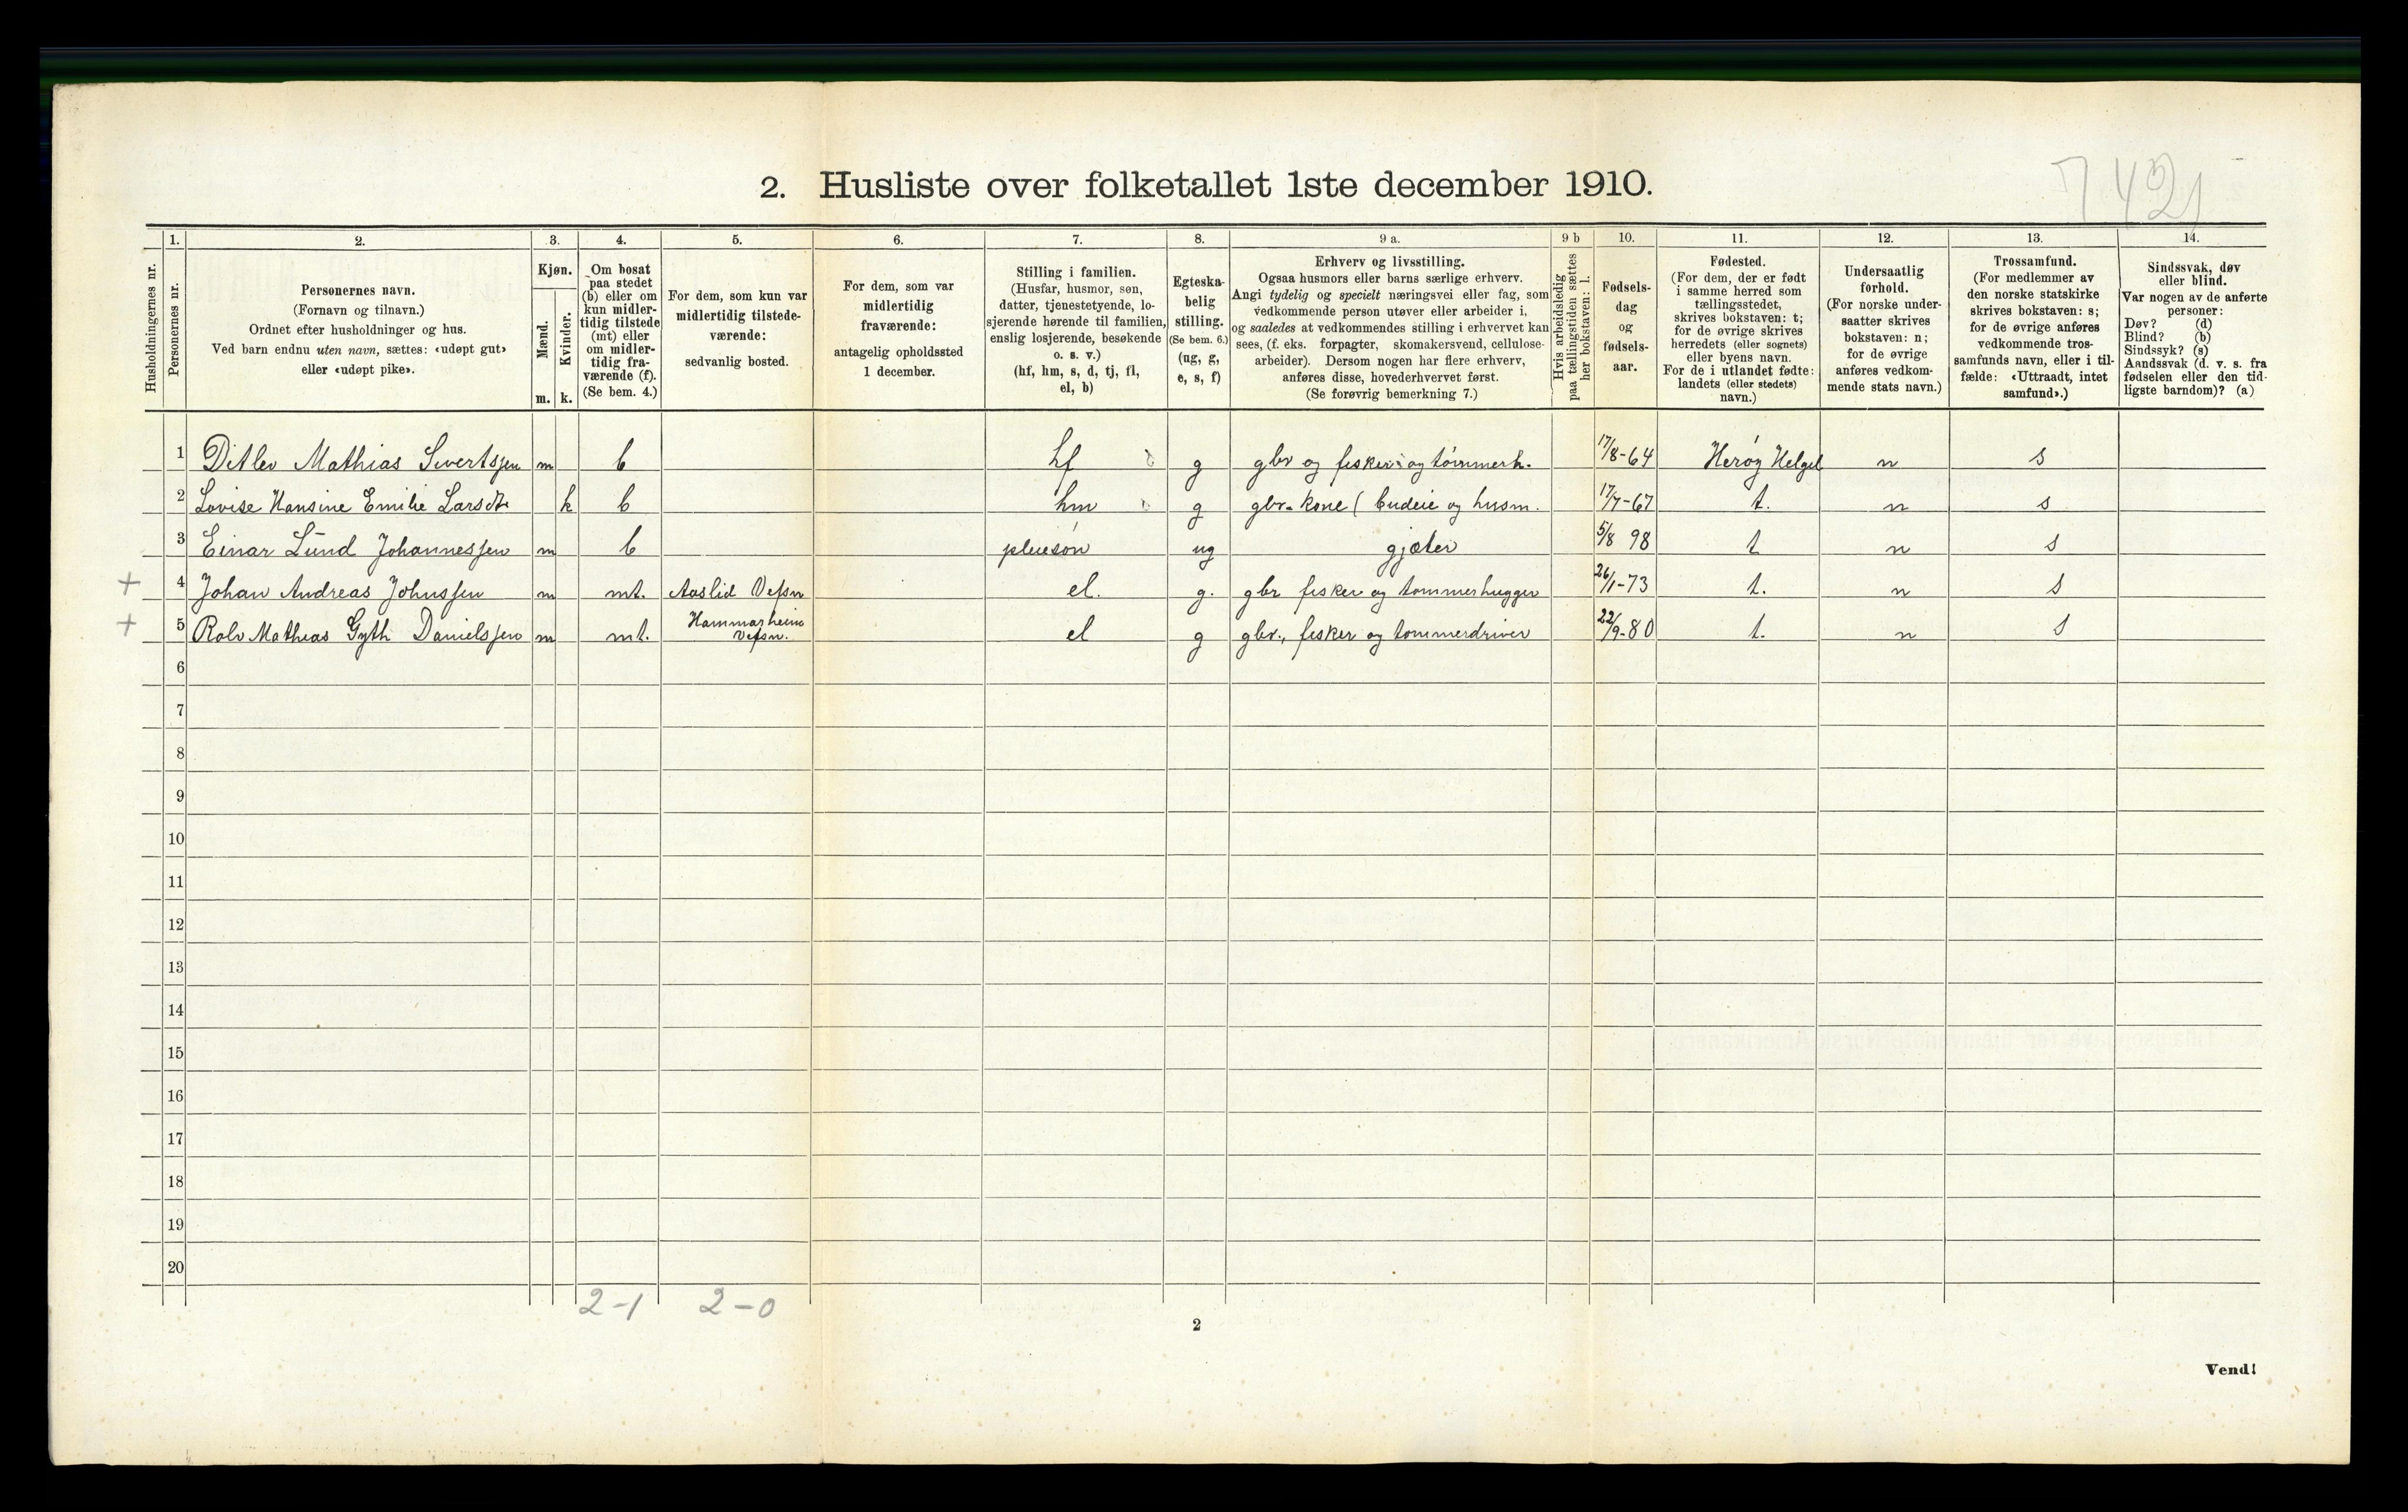 7421
2. Husliste over folketallet 1ste december 1910.
Husholdningernes nr.
1. Personernes nr.
2. Personernes navn.
(Fornavn og tilnavn.)
Ordnet efter husholdninger og hus.
Ved barn endnu uten navn, sættes: «udøpt gut»
eller «udøpt pike».
3. Kjøn.
Mænd. Kvinder.
m. k.
4. Om bosat
paa stedet
(b) eller om
kun midler-
tidig tilstede
(mt) eller
om midler-
tidig fra-
værende (f).
(Se bem. 4.)
5. For dem, som kun var
midlertidig tilstede-
værende:
sedvanlig bosted.
6. For dem, som var
midlertidig
fraværende:
antagelig opholdssted
1 december.
7. Stilling i familien.
(Husfar, husmor, søn,
datter, tjenestetyende, lo-
sjerende hørende til familien,
enslig losjerende, besøkende
o. s. v.)
(hf, hm, s, d, tj, fl,
el, b)
8. Egteska-
belig
stilling.
(Se bem. 6.)
(ug, g,
e, s, f)
9 a. Erhverv og livsstilling.
Ogsaa husmors eller barns særlige erhverv.
Angi tydelig og specielt næringsvei eller fag, som
vedkommende person utøver eller arbeider i,
og saaledes at vedkommendes stilling i erhvervet kan
sees, (f. eks. forpagter, skomakersvend, cellulose-
arbeider). Dersom nogen har flere erhverv,
anføres disse, hovederhvervet først.
(Se forøvrig bemerkning 7.)
9 b Hvis arbeidsledig
paa tællingstiden sættes
her bokstaven: l.
10. Fødsels-
dag
og
fødsels-
aar.
11. Fødested.
(For dem, der er født
i samme herred som
tællingsstedet,
skrives bokstaven: t;
for de øvrige skrives
herredets (eller sognets)
eller byens navn.
For de i utlandet fødte:
landets (eller stedets)
navn.)
12. Undersaatlig
forhold.
(For norske under-
saatter skrives
bokstaven: n;
for de øvrige
anføres vedkom-
mende stats navn.)
13. Trossamfund.
(For medlemmer av
den norske statskirke
skrives bokstaven: s;
for de øvrige anføres
vedkommende tros-
samfunds navn, eller i til-
fælde: «Uttraadt, intet
samfund».)
14. Sindssvak, døv
eller blind.
Var nogen av de anførte
personer:
Døv? (d)
Blind? (b)
Sindssyk? (s)
Aandssvak (d. v. s. fra
fødselen eller den tid-
ligste barndom)? (a)
1 Ditlev Mathias Sivertsjen m b hf g gbr og fisker og tømmerh. 17/8-64 Herøy Helgel n s
2 Lovise Hansine Emilie Larsdtr k b hm g gbr. kone (budeie og husm. 17/7-67 t. n s
3 Einar Lund Johannessen m b pleiesøn ug gjæter 5/8 98 t n s
+ 4 Johan Andreas Johnssen m mt. Aaslid Vefsn el. g. gbr fisker og tømmerhugger 26/1-73 t. n s
+ 5 Rolv Mathias Gyth Danielssen m mt. Hammarheim Vefsn. el g gbr., fisker og tømmerdriver 22/9-80 t. n s
6
7
8
9
10
11
12
13
14
15
16
17
18
19
20
2-1 2-0
2
Vend!